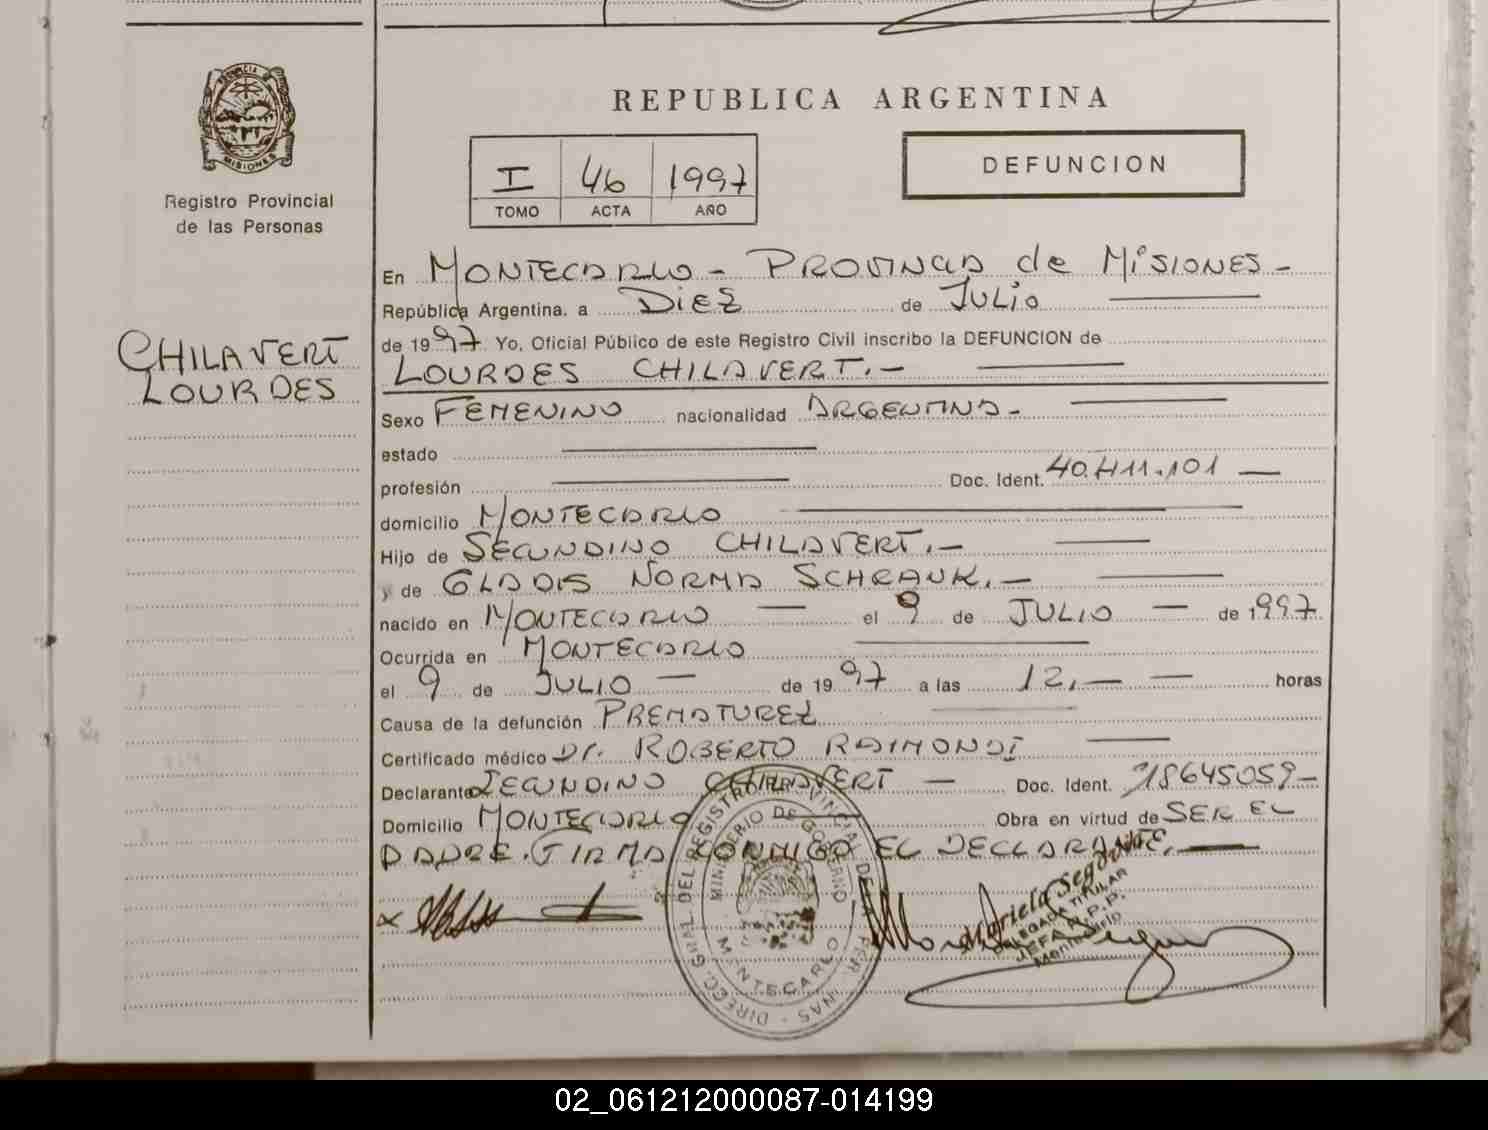 PROVINCIA DE
MISIONES
Registro Provincial
de las Personas
CHILAVERT
LOURDES
REPUBLICA ARGENTINA
I 46 1997
TOMO ACTA AÑO
DEFUNCION
En MONTECARLO - PROVINCIA de MiSIONES -
República Argentina. a DiEZ de JULio
de 1997 Yo, Oficial Público de este Registro Civil inscribo la DEFUNCION de
LOURDES CHILAVERT.-
Sexo FEMENINO nacionalidad ARGENTINA -
estado
profesión Doc. Ident. 40.411.101
domicilio MONTECARLO
Hijo de SECUNDINO CHILAVERT.-
y de GLADIS NORMA SCHRANK.-
nacido en MONTECARLO el 9 de JULIO de 1997
Ocurrida en MONTECARLO
el 9 de JULIO de 1997 a las 12,- horas
Causa de la defunción PREMATUREZ
Certificado médico Dr. ROBERTO RAIMONDI
Declarante SECUNDINO CHILAVERT Doc. Ident. 18645059-
Domicilio MONTECARLO Obra en virtud de SER EL
PADRE. FIRMA CONMIGO EL DECLARANTE.
DIREC. GRAL. DEL REGISTRO PROVINCIAL DE LAS PERSONAS
MINISTERIO DE GOBIERNO
MONTECARLO
DELEGADA TITULAR
JEFA R.P.P.
Montecarlo
02_061212000087-014199